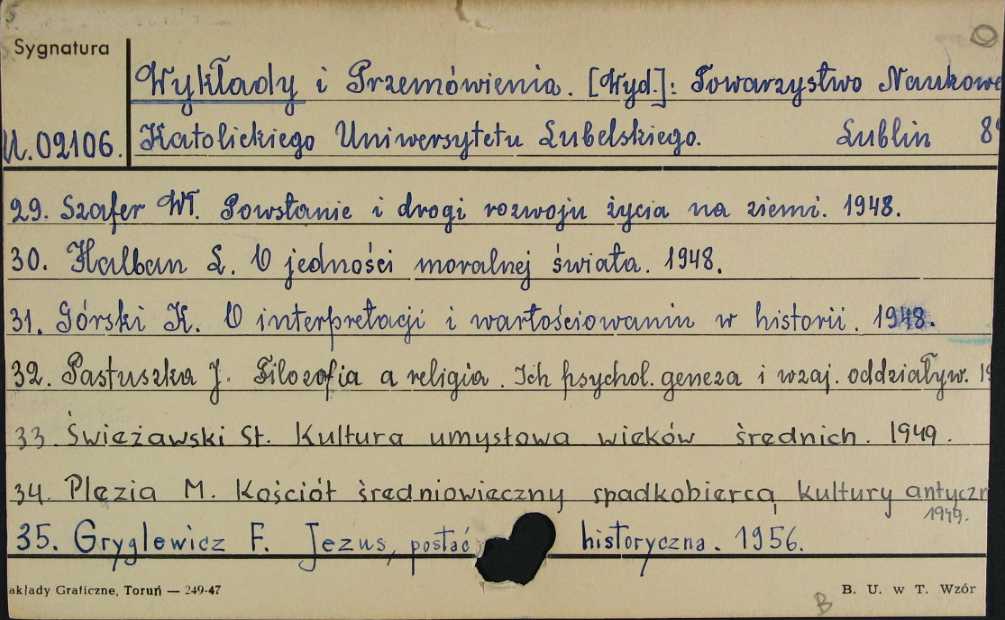 Sygnatura
Wykłady i Przemówienia. [Wyd.]: Towarzystwo Naukowe
U.02106. Katolickiego Uniwersytetu Lubelskiego. Lublin 8
29. Szafer Wł. Powstanie i drogi rozwoju życia na ziemi. 1948.
30. Halban L. O jedności moralnej świata. 1948.
31. Górski K. O interpretacji i wartościowaniu w historii. 1948.
32. Pastuszka J. Filozofia a religia. Ich psychol. geneza i wzaj. oddziaływ. 19
33. Świeżawski St. Kultura umysłowa wieków średnich. 1949.
34. Plezia M. Kościół średniowieczny spadkobiercą kultury antyczn
1949.
35. Gryglewicz F. Jezus, postać historyczna. 1956.
akłady Graficzne, Toruń — 249-47
B. U. w T. Wzór
B